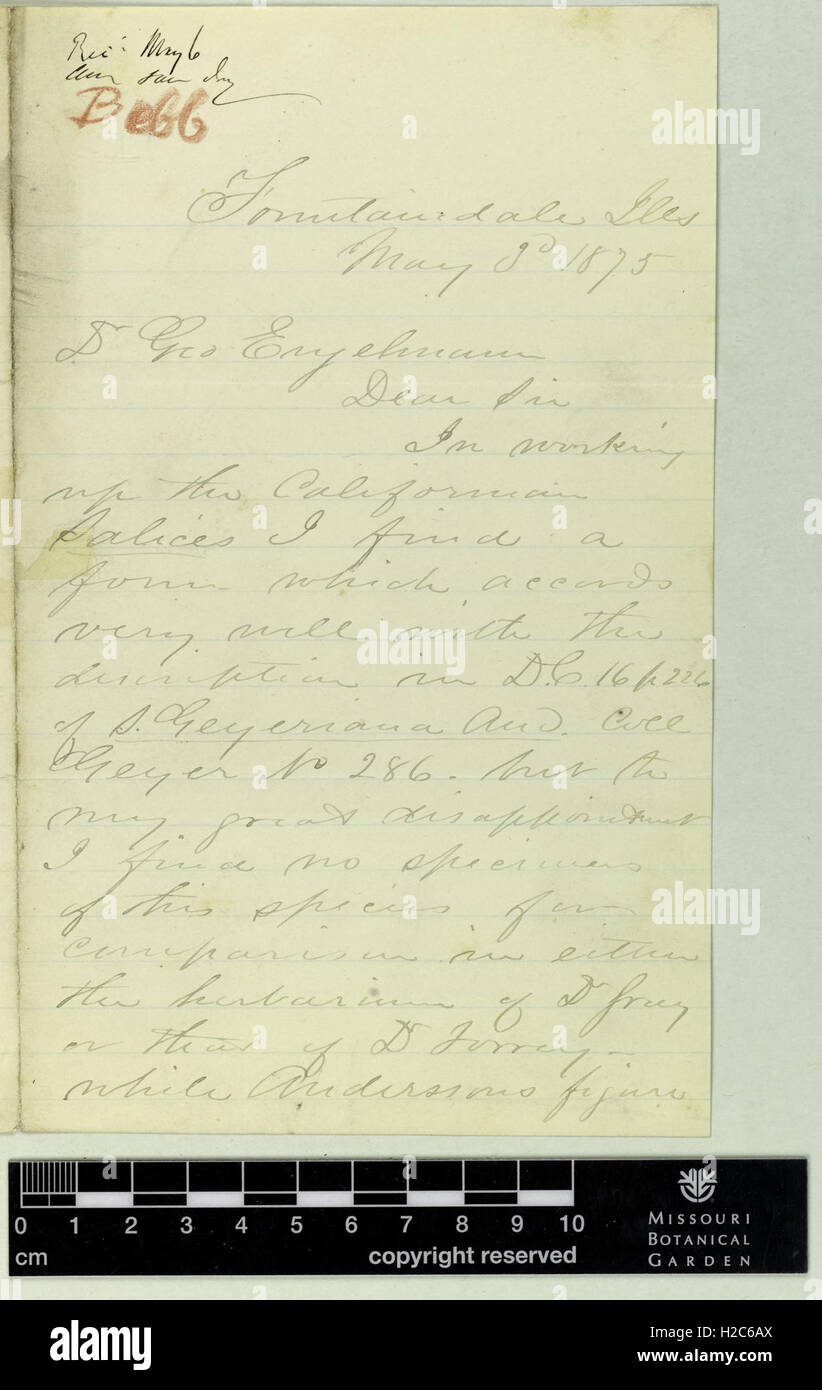 Rec: May 6
Ans same day
Bebb
Fountain-dale Ills
May 3d 1875
Dr Geo Engelmann
Dear Sir
In working
up the Californian
Salices I find a
form which accords
very well with the
description in D.C. 16 p 226
of S. Geyeriana And. Coll
Geyer No 286. but to
my great disappointment
I find no specimens
of this species for
comparison in either
the herbarium of Dr Gray
or that of Dr Torrey -
while Anderssons figure
0 1 2 3 4 5 6 7 8 9 10
cm
copyright reserved
MISSOURI
BOTANICAL
GARDEN
alamy
alamy
alamy
alamy
a
a
a
a
a
a
a
a
alamy
Image ID: H2C6AX
www.alamy.com